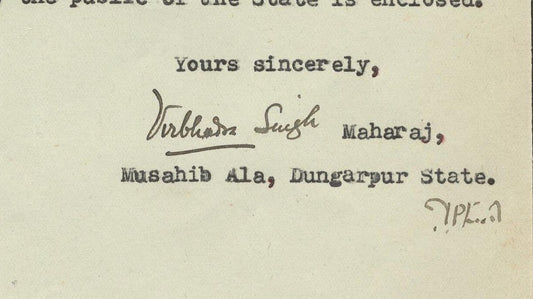 the public of the State is enclosed.
Yours sincerely,
Virbhadra Singh Maharaj,
Musahib Ala, Dungarpur State.